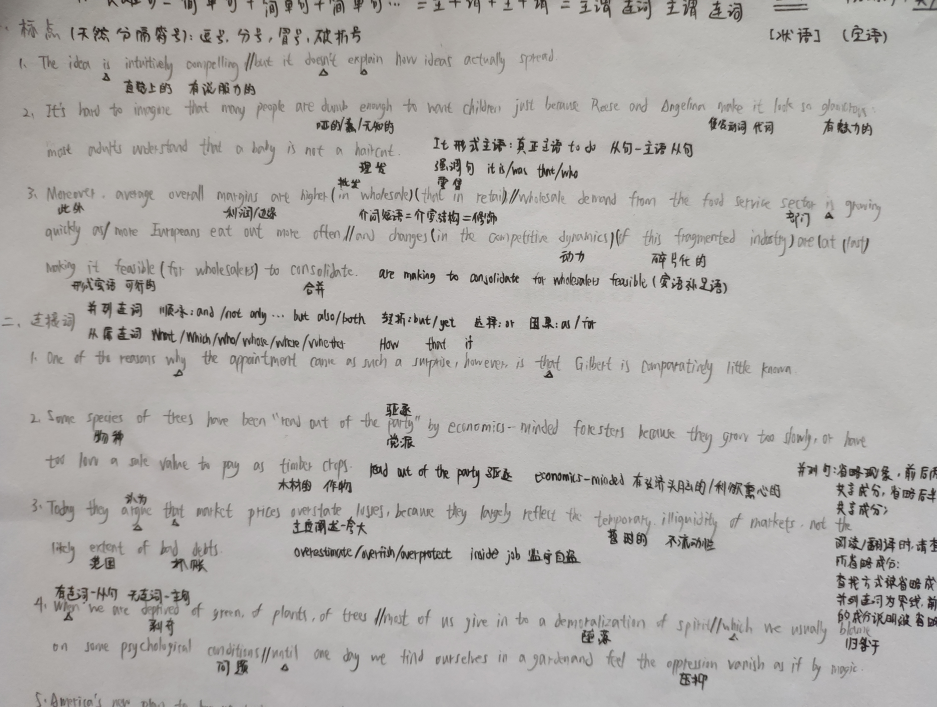 简单句+简单句+简单句…=主+谓+主+谓=主谓 连词 主谓 连词
标点(天然分隔符号):逗号,分号,冒号,破折号 [状语] (定语)
1. The idea is intuitively compelling//but it doesn't explain how ideas actually spread.
直觉上的 有说服力的
2. It's hard to imagine that many people are dumb enough to want children just because Reese and Angelina make it look so glamorous:
哑的/蠢/无知的 使役动词 代词 有魅力的
most adults understand that a baby is not a haircut. It 形式主语:真正主语 to do 从句-主语从句
理发 强调句 it is/was that/who
批发 零售
3. Moreover, average overall margins are higher(in wholesale)(that in retail)//wholesale demand from the food service sector is growing
此外 利润/边缘 介词短语=介宾结构=修饰 部门
quickly as/more Europeans eat out more often//and changes(in the competitive dynamics)(of this fragmented industry)are(at (last)
动力 碎片化的
making it feasible(for wholesalers) to consolidate. are making to consolidate for wholesalers feasible(宾语补足语)
形式宾语 可行的 合并
二、连接词 并列连词 顺承:and/not only … but also/both 转折:but/yet 选择:or 因果:as/for
从属连词 What/Which/who/whose/where/whether How that if
1. One of the reasons why the appointment came as such a surprise, however, is that Gilbert is comparatively little known.
驱逐
2. Some species of trees have been "read out of the party" by economics-minded foresters because they grow too slowly, or have
物种 党派
too low a sale value to pay as timber crops. read out of the party 驱逐 economics-minded 有经济头脑的/利欲熏心的 并列句:省略现象,前后
木材的 作物 共享成分,省略后
认为 共享成分;
3. Today they argue that market prices overstate losses, because they largely reflect the temporary illiquidity of markets, not the
主度阐述-夸大 暂时的 不流动性
likely extent of bad debts. overestimate/overfish/overprotect inside job 监守自盗 阅读/翻译时,请
范围 坏账 所省略成分:
有连词-从句 无连词-主句 查找方式:
4. When we are deprived of green, of plants, of trees//most of us give in to a demoralization of spirit//which we usually blame
剥夺 堕落 归咎于
并列连词为界线,前
的成分说明被省略
on some psychological conditions//until one day we find ourselves in a gardenand feel the oppression vanish as if by magic.
问题 压抑
5. America's new plan to